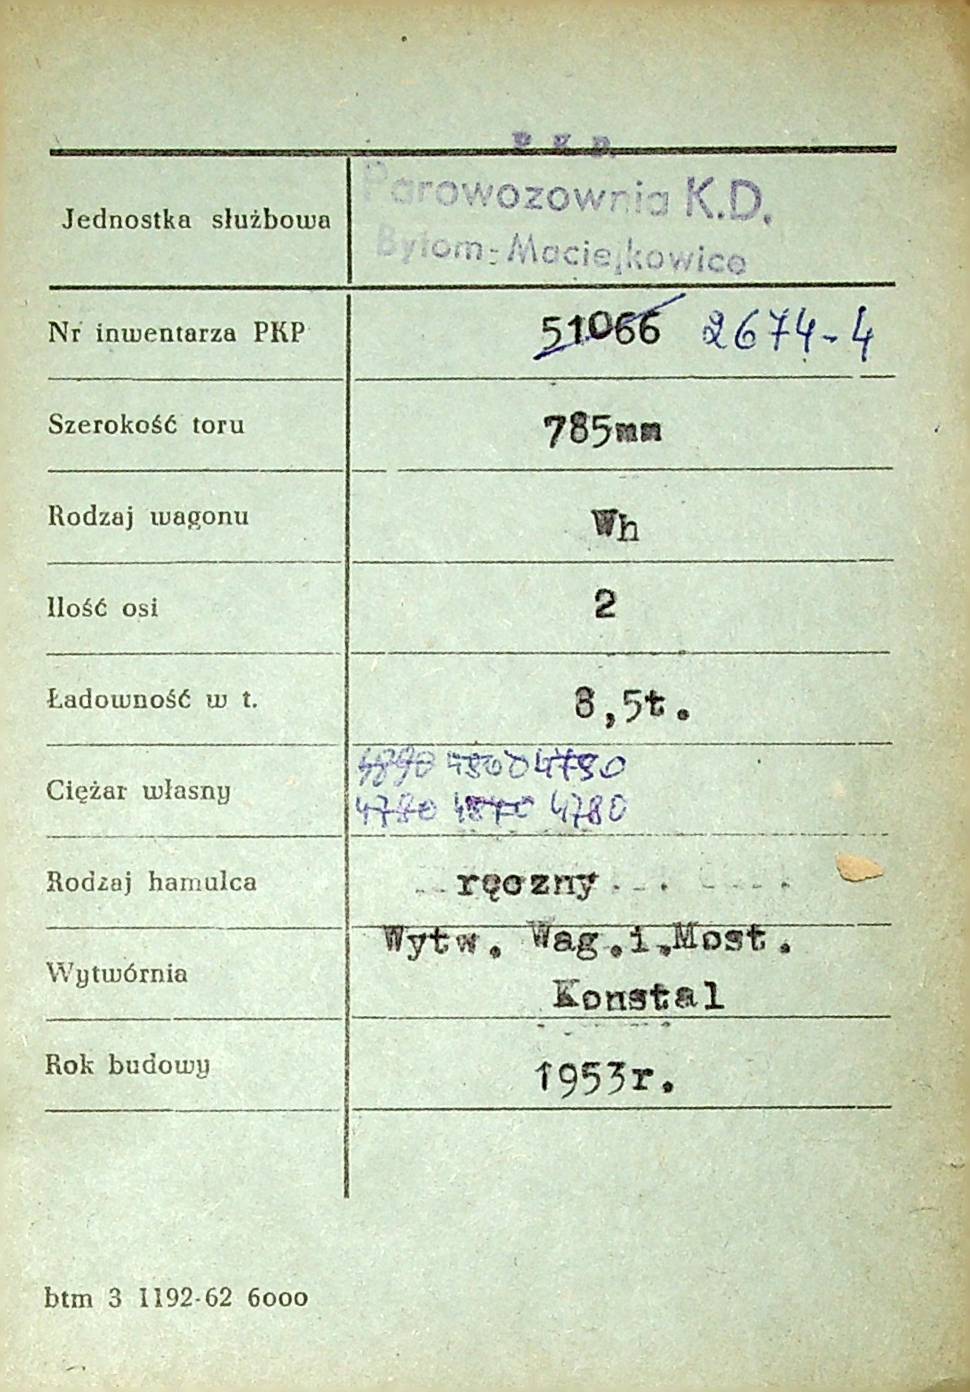 P.K.P.
Parowozownia K.D.
Bytom-Maciejkowice
Jednostka służbowa
Nr inwentarza PKP 51066 2674-4
Szerokość toru 785mm
Rodzaj wagonu Wh
Ilość osi 2
Ładowność w t. 8,5t.
4890 4800 4790
Ciężar własny
4780 4870 4780
Rodzaj hamulca ręczny
Wytw. Wag.i.Most.
Wytwórnia
Konstal
Rok budowy 1953r.
btm 3 1192-62 6000